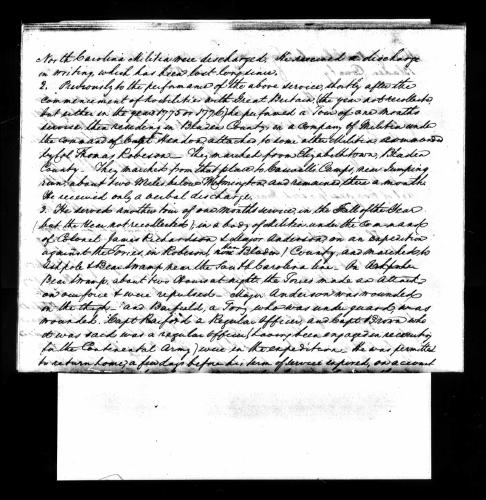 North Carolina Militia were discharged. He received a discharge
in writing, which has been lost long since.
2. Previously to the performance of the above service, shortly after the
commencement of hostilities with Great Britain (the year not recollected,
but either in the years 1775 or 1776) he performed a Tour of one months
service then residing in Bladen County in a company of Militia under
the command of Capt. attached to some other Militia, commanded
by Col. Thomas Robeson. They marched from Elizabethtown, Bladen
County. They marched from that place to Camps, near Jumping
run, about two Miles below Wilmington and remained there a month.
He received only a verbal discharge.
3. He served another tour of one months service, in the Fall of the Year
(but the Year not recollected) in a body of Militia under the command
of Colonel James Richardson & Major Anderson on an expedition
against the Tories in Robeson, then Bladen County, and marched to
Ashpole & Bear Swamp near the South Carolina line. On Ashpole
Bear Swamp, about two hours at night, the Tories made an Attack
on our force & were repulsed. Major Anderson was wounded
in the thigh and Barfield, a Tory, who was under guard, was
wounded. Capt. Raiford a Regular Officer, and Capt. who
it was said was a regular officer, (having been engaged in recruiting
for the Continental Army) were in the expedition. He was permitted
to return home, a few days before his term of service expired, on account